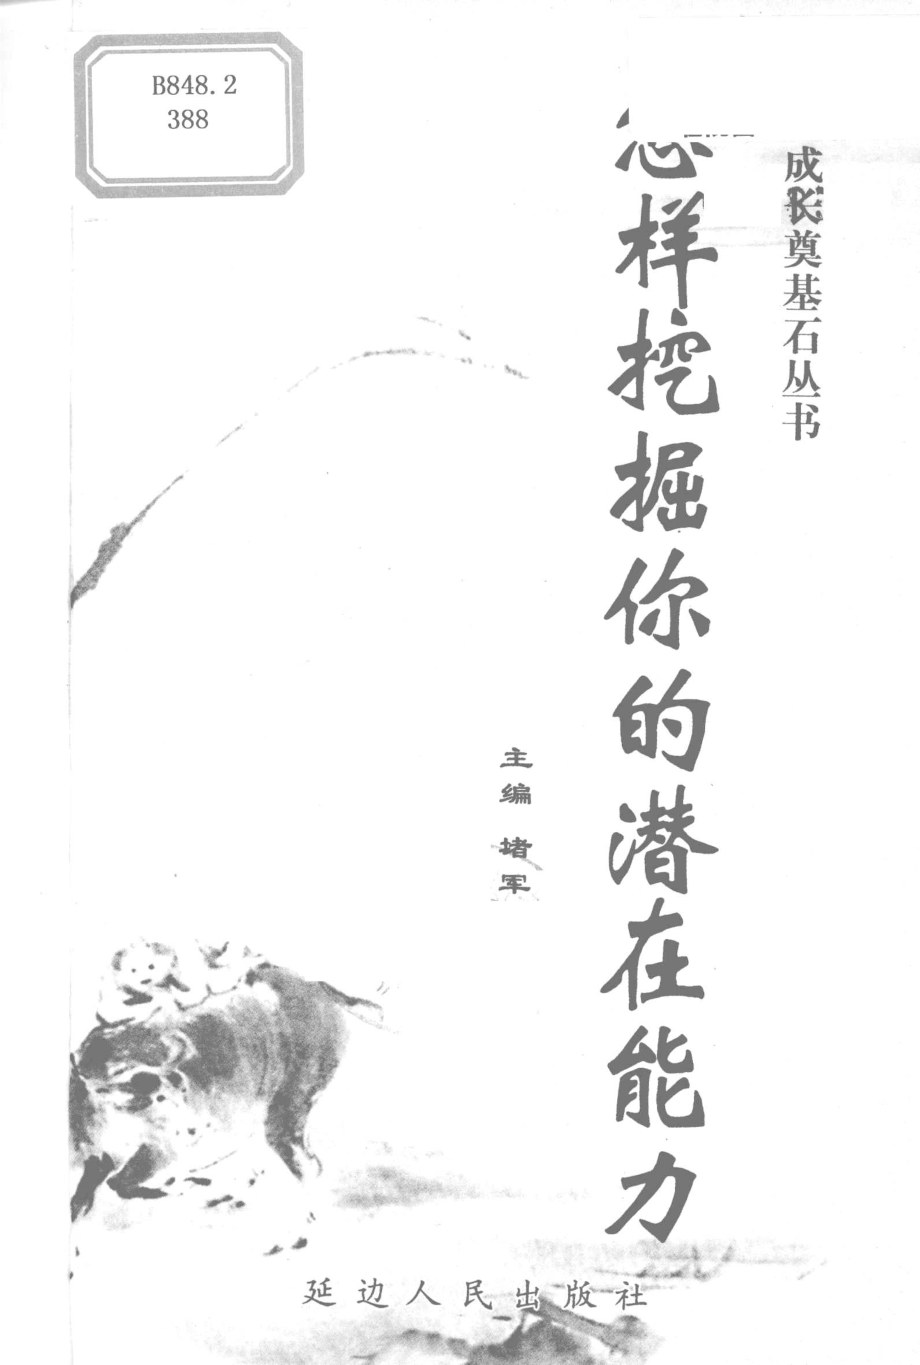 B848.2
388
成长奠基石丛书
怎样挖掘你的潜在能力
主编 堵军
延边人民出版社